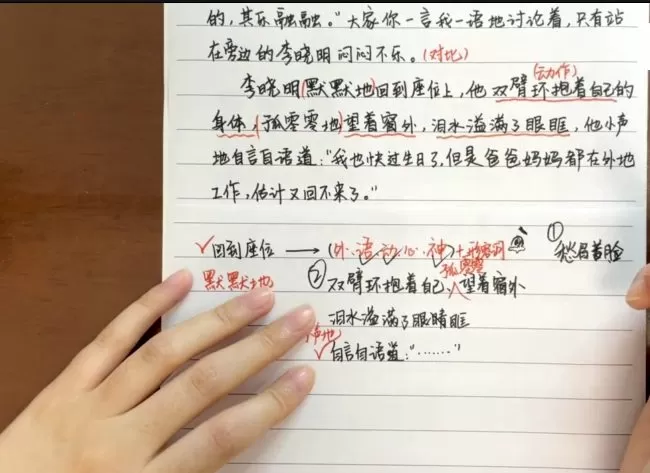 的，其乐融融。"大家你一言我一语地讨论着，只有站
在旁边的李晓明闷闷不乐。(对比)
(动作)
李晓明(默默地)回到座位上，他双臂环抱着自己的
身体，(孤零零地)望着窗外，泪水溢满了眼眶，他小声
地自言自语道："我也快过生日了，但是爸爸妈妈都在外地
工作，估计又回不来了。"
✓回到座位 → (外·语·动·心·神)+形容词 ① 愁眉苦脸
默默地
孤零零
② 双臂环抱着自己、望着窗外
泪水溢满了眼睛眶
声地
✓自言自语道："……"